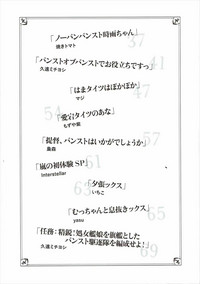 「ノーパンパンスト時雨ちゃん」
焼きトマト
37
「パンストオブパンストでお役立ちですっ」
久遠ミチヨシ
41
「はまタイツはぽかぽか」
マジ
「愛宕タイツのあな」
もずや紫
54
57
「提督、パンストはいかがでしょうか」
島森
「嵐の初体験SP」
Interstellar
61
「夕張ックス」
いちこ
63
「むっちゃんと息抜きックス」
yasu
65
「任務:精鋭!処女艦娘を旗艦とした
パンスト駆逐隊を編成せよ!」
久遠ミチヨシ
69